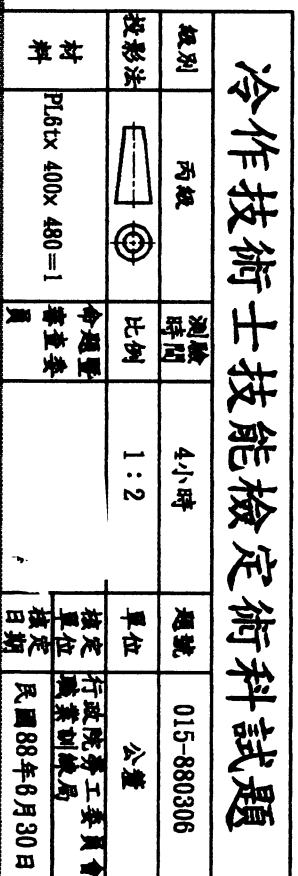 冷作技術士技能檢定術科試題
級別 丙級 測驗時間 4小時 題號 015-880306
投影法 比例 1:2 單位 公釐
材料 PL6tx 400x 480=1 命題暨審查委員 核定單位 行政院勞工委員會職業訓練局
核定日期 民國88年6月30日